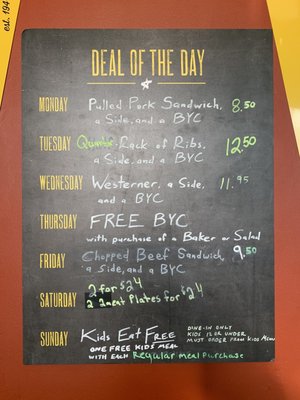 est. 194
DEAL OF THE DAY
MONDAY Pulled Pork Sandwich, 8.50
a Side, and a BYC
TUESDAY Quarter Rack of Ribs, 12.50
a Side, and a BYC
WEDNESDAY Westerner, a Side, 11.95
and a BYC
THURSDAY FREE BYC
with purchase of a Baker or Salad
FRIDAY Chopped Beef Sandwich, 9.50
a Side, and a BYC
2 for $24
SATURDAY 2 2meat Plates for $24
SUNDAY Kids Eat FREE
ONE FREE KIDS MEAL
WITH EACH Regular Meal Purchase
DINE-IN ONLY
KIDS 12 OR UNDER
MUST ORDER FROM KIDS MENU